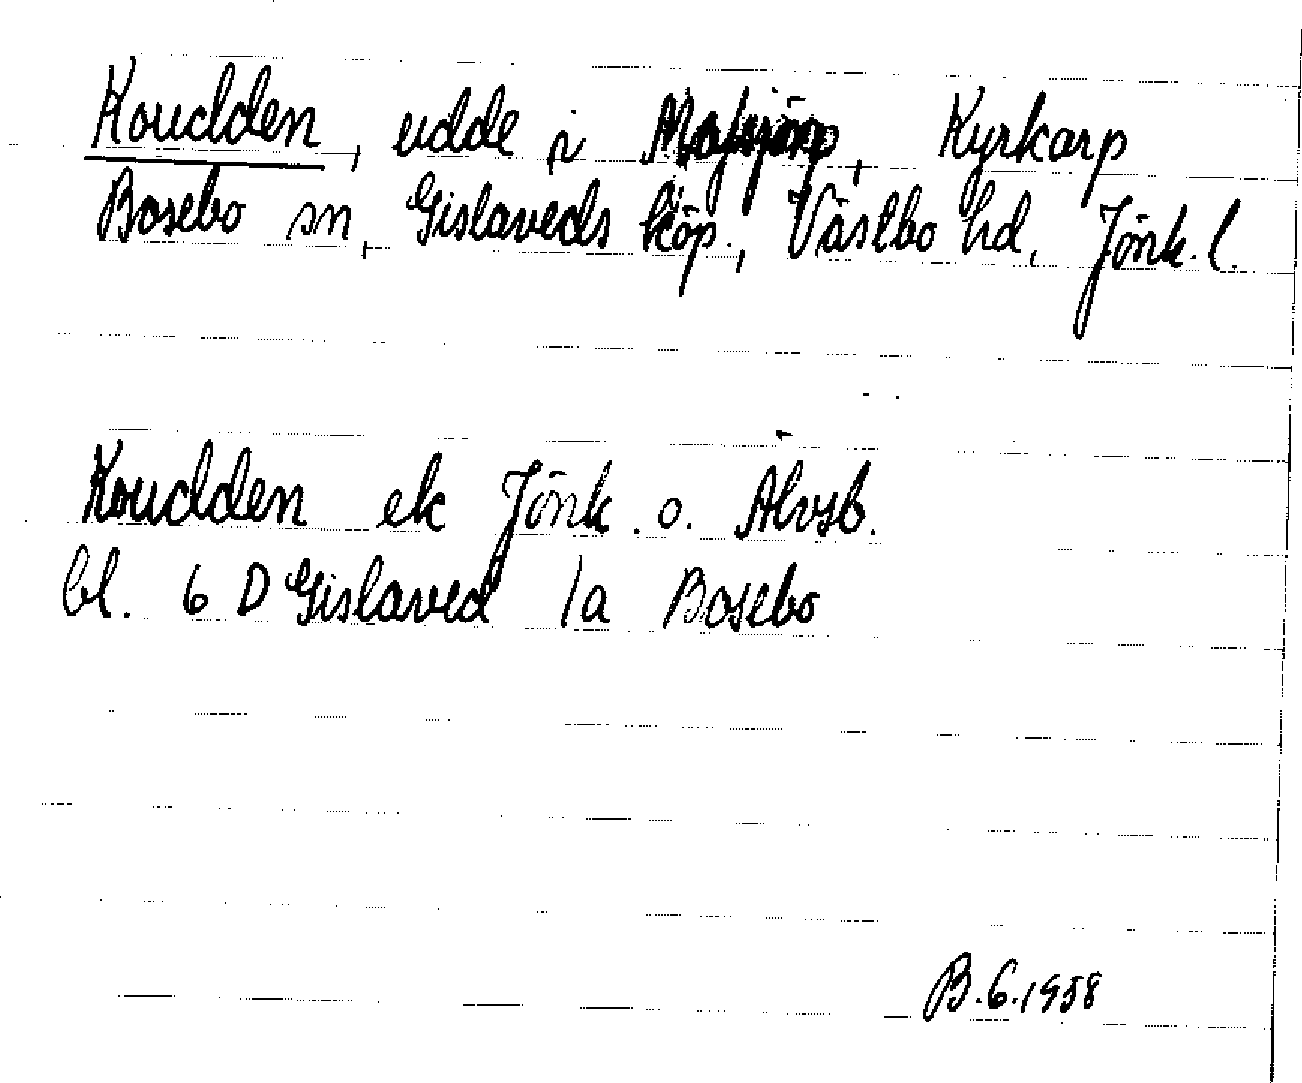 Koudden, udde i Kyrkarp
Bosebo sn, Gislaveds köp., Västbo hd, Jönk. l.
Koudden ek Jönk. o. Älvsb.
bl. 6 D Gislaved 1a Bosebo
B.6.1958